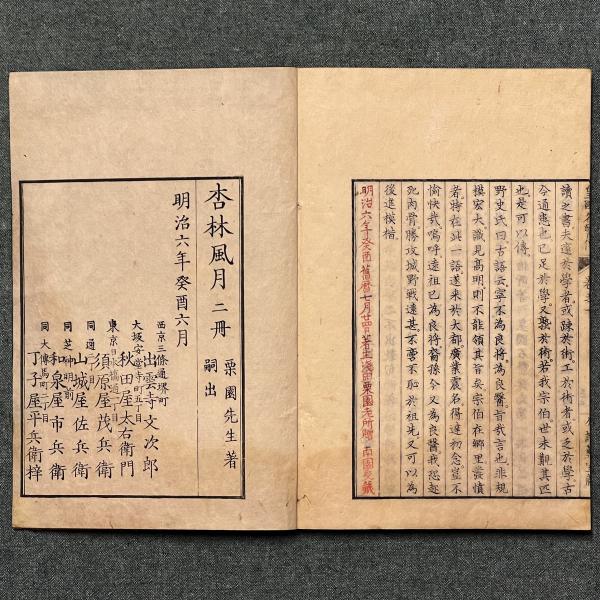 讀之書夫適於學者或疎於術工於術者或乏於學古
今通患也已足於學又覈於術若我宗伯世未覩其匹
也是可以傳
野史氏曰古語云寧不為良將為良醫旨我言也非規
摸宏大識見高明則不能領其旨矣宗伯在鄉里蓄憤
者時在此一語遂来於大都廣業震名得達初念豈不
愉快哉嗚呼遠祖已為良將裔孫今又為良醫我恐起
死肉骨勝攻城野戰遠甚不啻不恥於祖先又可以為
後進模楷
明治六年癸酉舊曆七月廿四日著主淺田栗園先所贈
杏林風月 二冊
栗園先生著
嗣出
明治六年癸酉六月
西京三條通堺町
出雲寺文次郎
大坂安堂寺町五丁目
秋田屋太右衛門
東京日本橋通一丁目
須原屋茂兵衛
同通二丁目
山城屋佐兵衛
同芝神明前
和泉屋市兵衛
同大傳馬町二丁目
丁子屋平兵衛梓